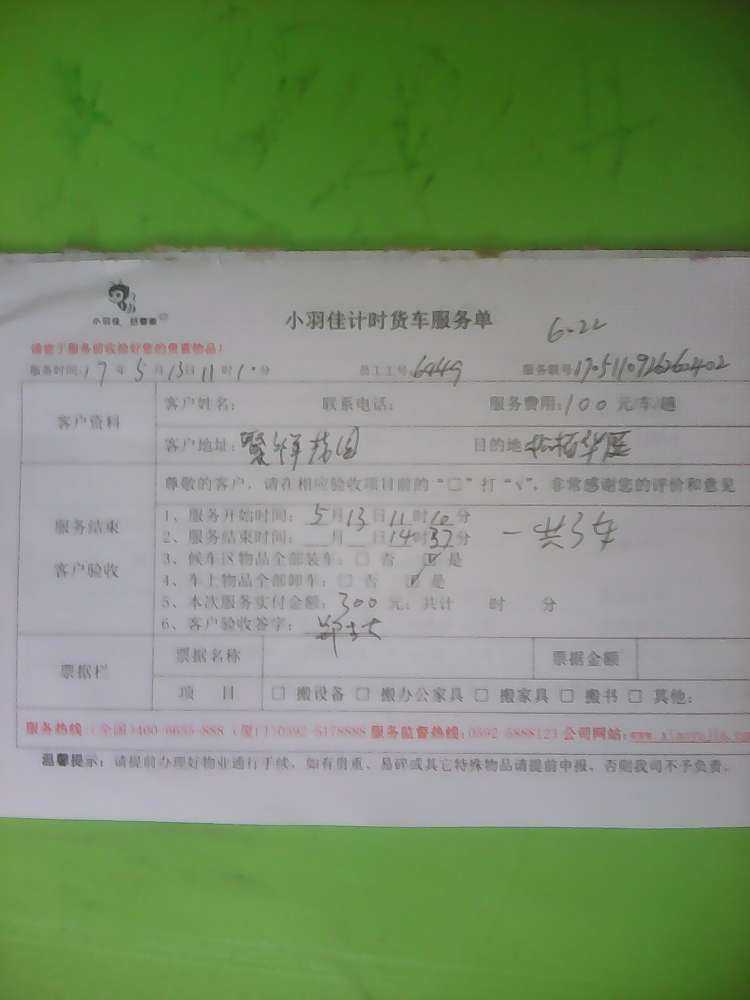 小羽佳
小羽佳计时货车服务单
6-22
请您于服务前收拾好您的贵重物品！
服务时间：17年5月13日11时1分 员工工号：6449 服务账号：
客户资料
客户姓名： 联系电话： 服务费用：100元/车/趟
客户地址： 目的地
尊敬的客户，请在相应验收项目前的“□”打“√”，非常感谢您的评价和意见
服务结束
客户验收
1、服务开始时间：5月13日11时10分
2、服务结束时间：__月__日14时37分 一共3车
3、候车区物品全部装车：□ 否 ☑ 是
4、车上物品全部卸车：□ 否 ☑ 是
5、本次服务实付金额：300元；共计 时 分
6、客户验收签字：
票据栏
票据名称 票据金额
项 目 □ 搬设备 □ 搬办公家具 □ 搬家具 □ 搬书 □ 其他：
服务热线：（全国）400-6655-888（厦门）0592-5178888 服务监督热线：0592-5888123 公司网站：
温馨提示：请提前办理好物业通行手续，如有贵重、易碎或其它特殊物品请提前申报，否则我司不予负责。